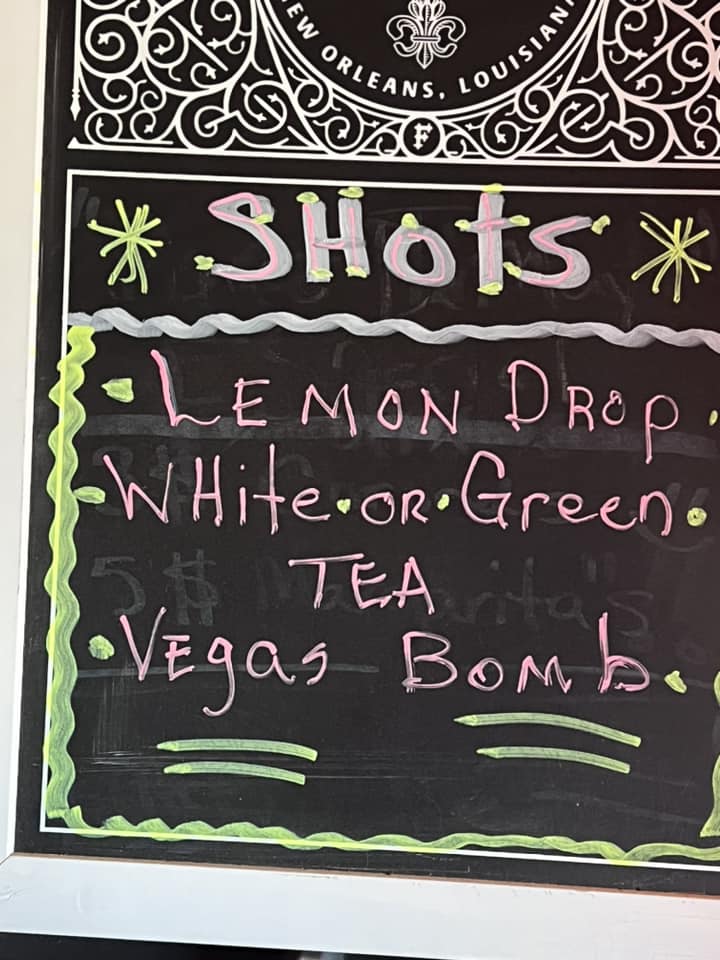 NEW ORLEANS, LOUISIANA
F
SHots
LEMON DROP
WHite·OR·Green
TEA
VEgas BOMb
5$ Margarita's